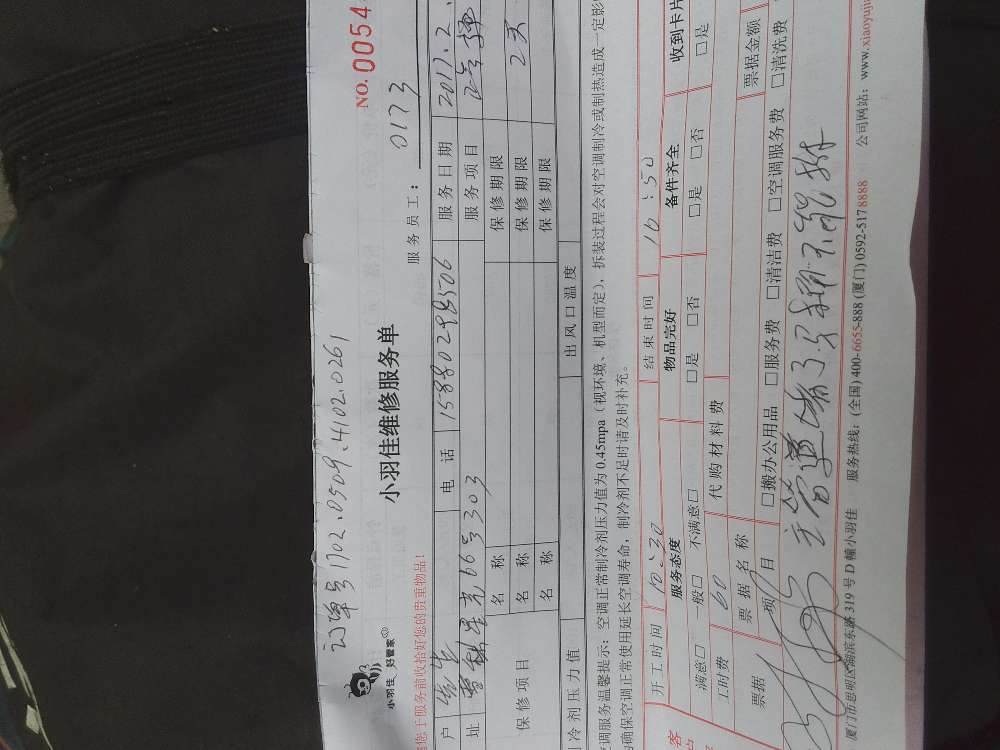 订单号1702.0509.4102.0261
NO.0054
小羽佳 好管家
小羽佳维修服务单
服务员工: 0173
您于服务前收拾好您的贵重物品!
户 电 话 15880298506 服务日期 2017.2.
址 66号303 服务项目
保修项目
名 称 保修期限
名 称 保修期限 2天
名 称 保修期限
冷剂压力值 出风口温度
调服务温馨提示:空调正常制冷剂压力值为 0.45mpa(视环境、机型而定),拆装过程会对空调制冷或制热造成一定影
确保空调正常使用延长空调寿命,制冷剂不足时请及时补充。
开工时间 10:30 结束时间 10:50
服务态度 物品完好 备件齐全 收到卡片
满意□ 一般□ 不满意□ □是 □否 □是 □否 □是
工时费 60 代购材料费
票据 票据名称 票据金额
项 目 □搬办公用品 □服务费 □清洁费 □空调服务费 □清洗费
主管道堵了
厦门市思明区湖滨东路 319 号 D 幢小羽佳 服务热线:(全国) 400-6655-888 (厦门) 0592-517 8888 公司网站:www.xiaoyuji